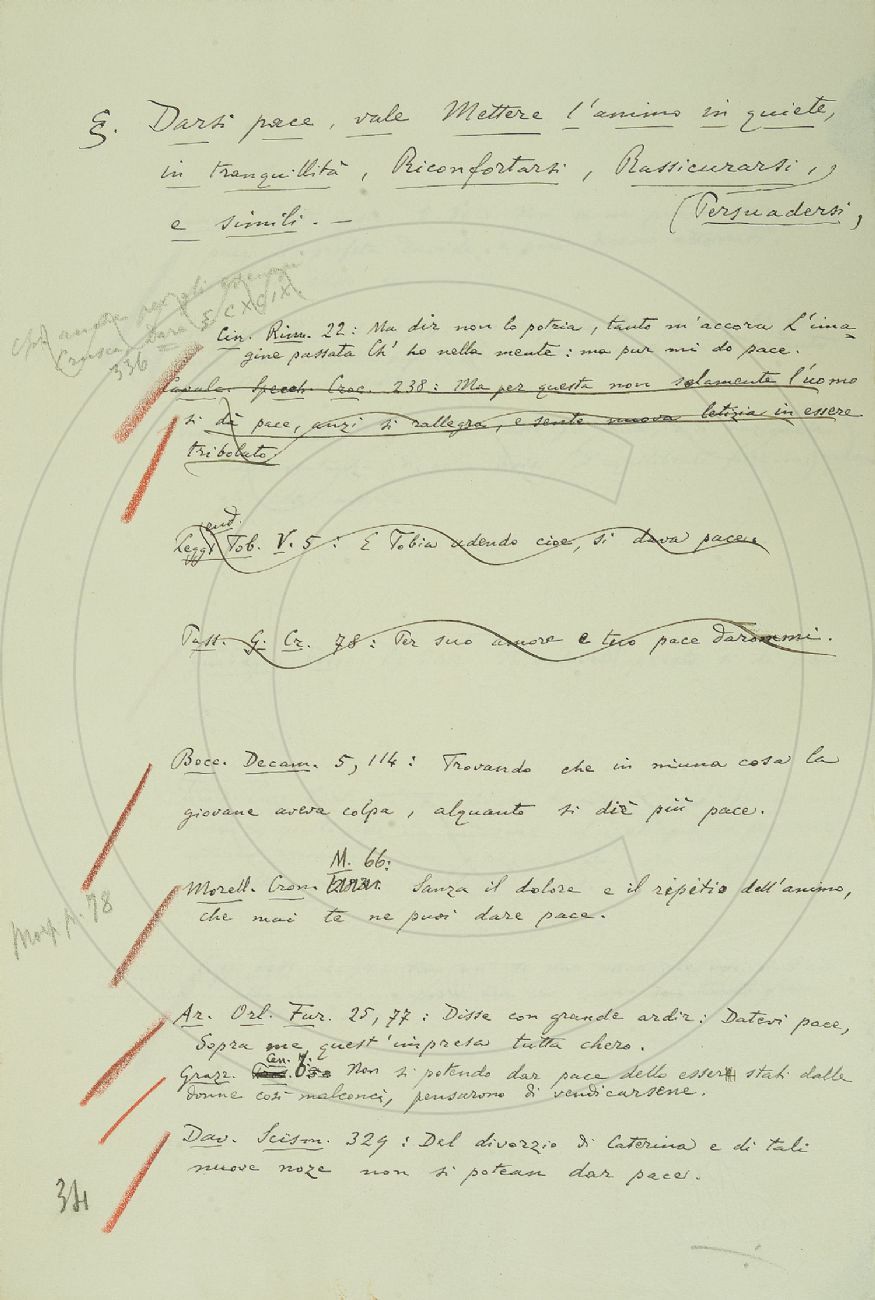 §. Darsi pace, vale Mettere l'animo in quiete,
in tranquillità, Riconfortarsi, Rassicurarsi,
(Persuadersi,
e simili. —
Cin. Rim. 22: Ma dir non lo potria, tanto m'accora L'ima-
gine passata Ch' ho nella mente: ma pur mi do pace.
336
Cavalc. Specch. Croc. 238: Ma per questa non solamente l'uomo
si dà pace, anzi si rallegra, e sente nuova letizia in essere
tribolato.
Leggend. Tob. V. 5: E Tobia udendo cioe, si dava pace.
Pass. G. Cr. 78: Per suo amore e tuo pace darommi.
Bocc. Decam. 5, 114: Trovando che in niuna cosa la
giovane aveva colpa, alquanto si diè più pace.
M. 66:
Morell. Cron. Sanza il dolore e il ripitio dell'animo,
che mai te ne puoi dare pace.
78
Ar. Orl. Fur. 25, 77: Disse con grande ardir: Datevi pace,
Sopra me quest'impresa tutta chero.
Cen. 7.
Graz. Non si potendo dar pace dello essere stati dalle
donne così malconci, pensarono di vendicarsene.
Dav. Scism. 329: Del divorzio di Caterina e di tali
nuove noze non si potean dar pace.
34